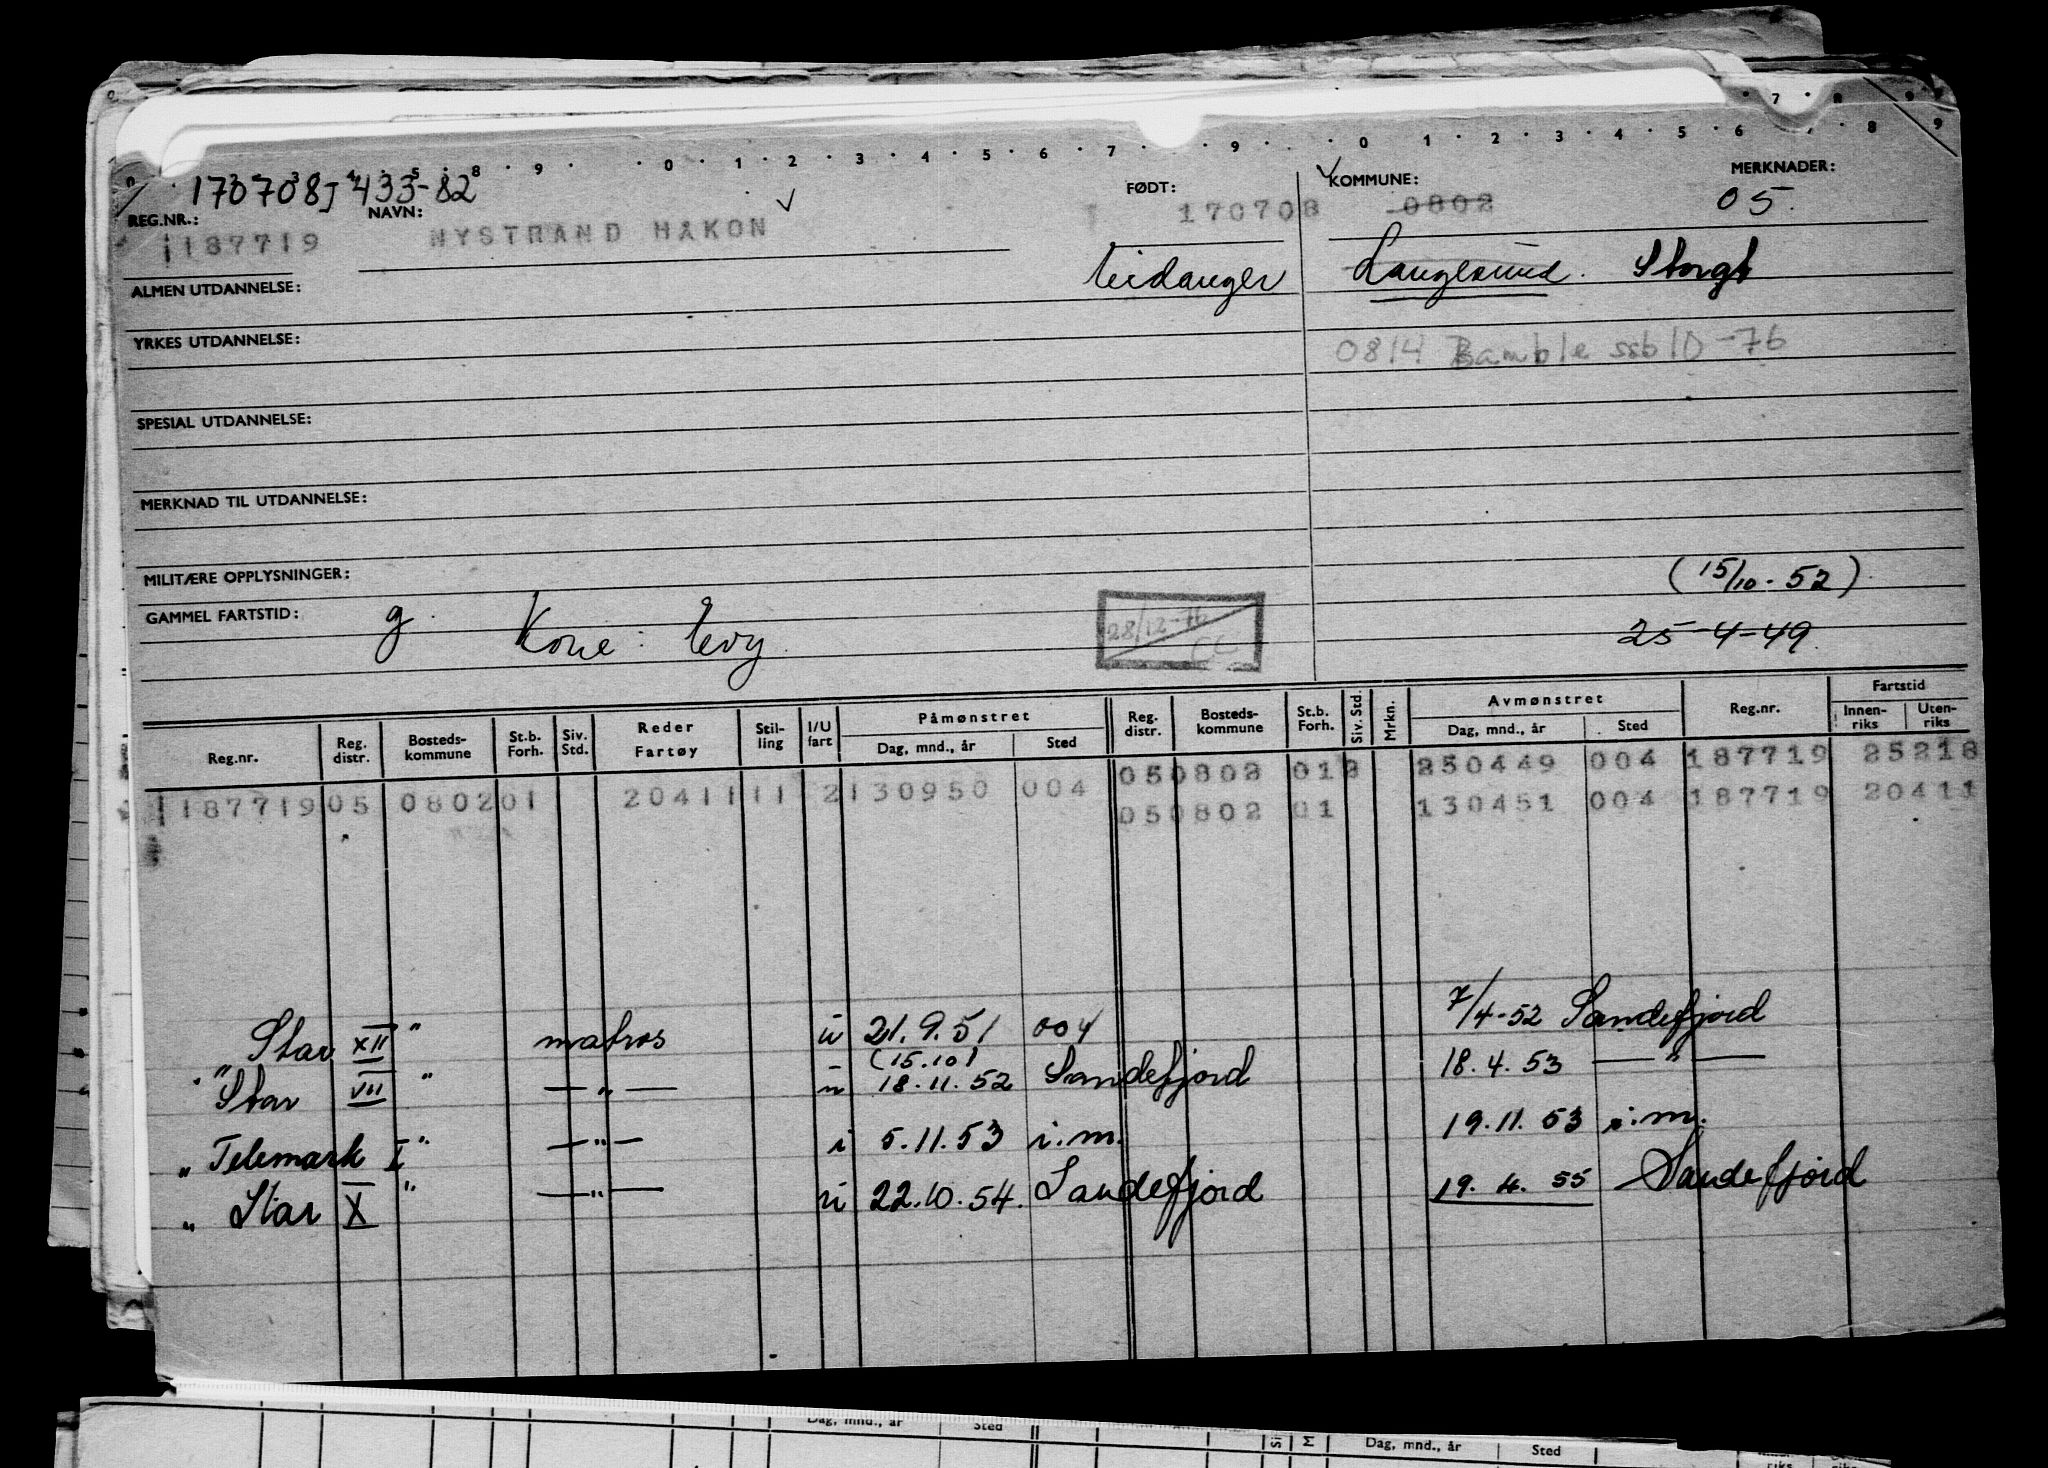 7 8 9
0 1 2 3 4 5 6 7 8 9
9 0 1 2 3 4 5 6 7 9
170708J 433-82
REG.NR.: NAVN: FØDT: KOMMUNE: MERKNADER:
187719 NYSTRAND HAKON 170708 0802 05.
ALMEN UTDANNELSE: Eidanger Langesund. Storgt
YRKES UTDANNELSE: 0814 Bamble ssb 10-76
SPESIAL UTDANNELSE:
MERKNAD TIL UTDANNELSE:
MILITÆRE OPPLYSNINGER: (15/10-52)
GAMMEL FARTSTID: g. Kone: Evy 28/12-76 25-4-49
Reg.nr. Reg. distr. Bosteds-kommune St.b. Forh. Siv. Std. Reder Fartøy Stil-ling I/U fart Påmønstret Dag, mnd., år Sted Reg. distr. Bosteds-kommune St.b. Forh. Siv. Std. Mrkn. Avmønstret Dag, mnd., år Sted Reg.nr. Fartstid Innen-riks Uten-riks
050802 012 250449 004 187719 25218
187719 05 0802 01 20411 11 2 130950 004 050802 01 130451 004 187719 20411
Star XII " matros u 21.9.51 004 7/4-52 Sandefjord
(15.10)
" Star VII " — " — u 18.11.52 Sandefjord 18.4.53 — " —
" Telemark I " — " — i 5.11.53 i.m. 19.11.53 i.m.
" Star X " — " — u 22.10.54. Sandefjord 19.4.55 Sandefjord
Dag, mnd., år Sted Dag, mnd., år Sted